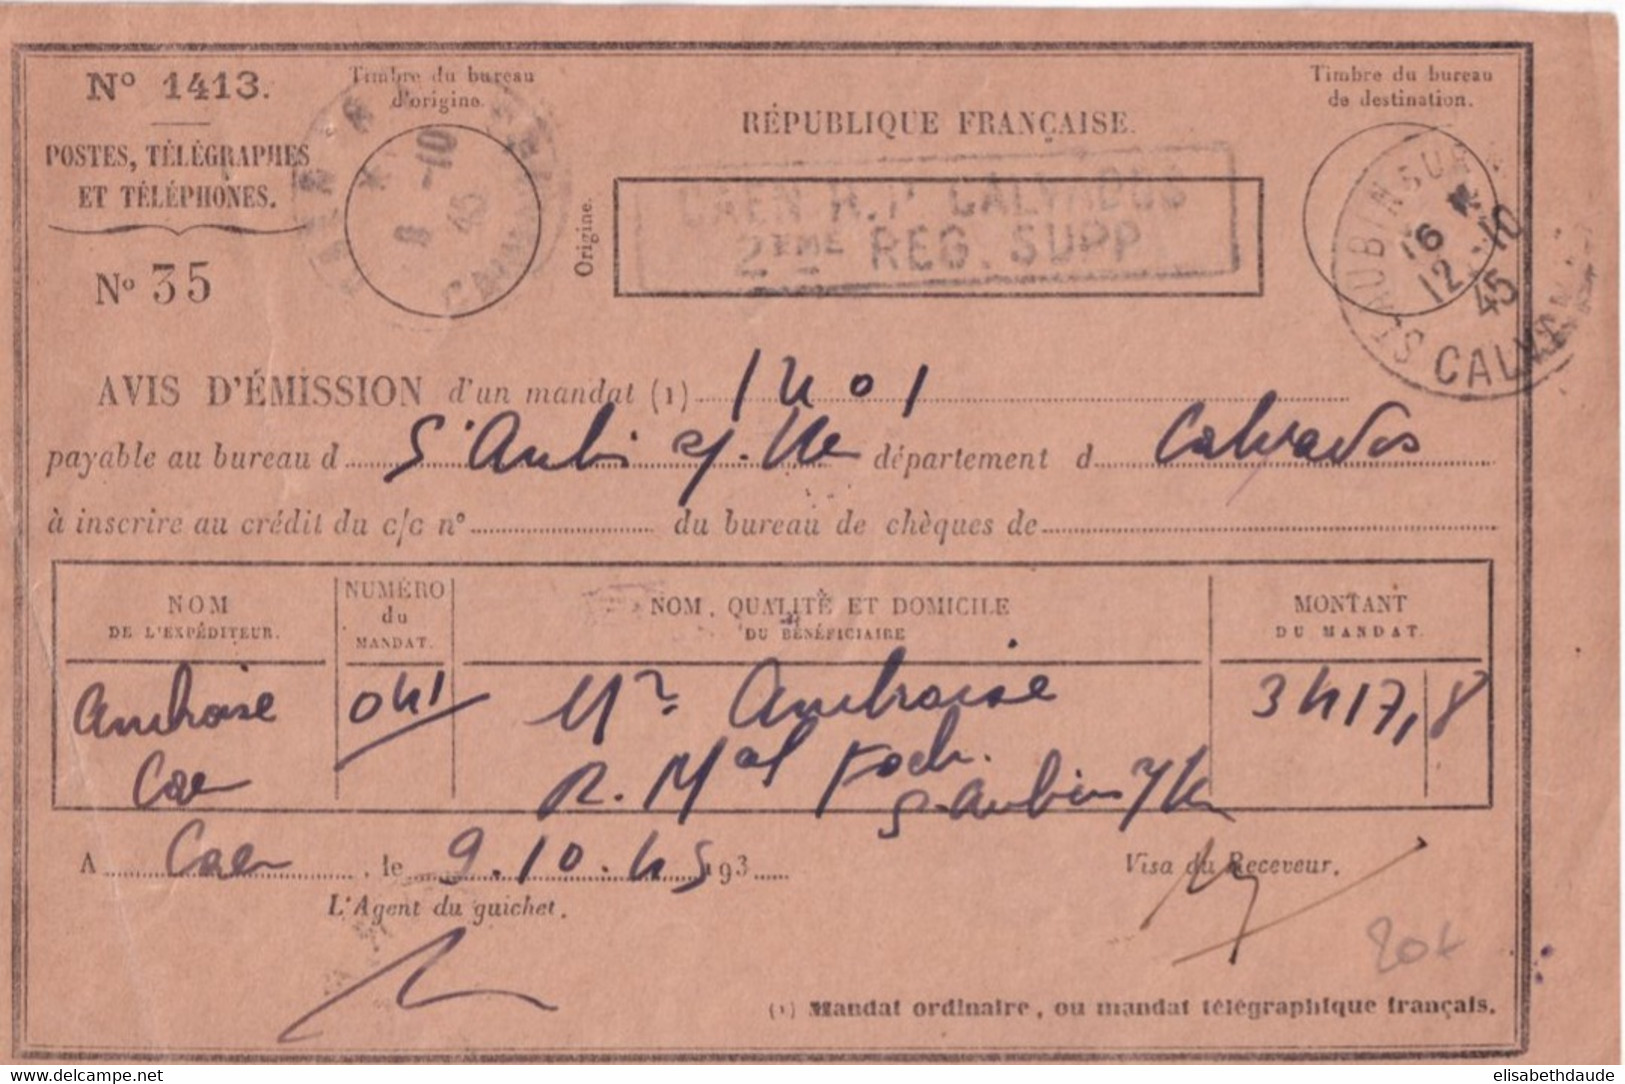 Nº 1413.
POSTES, TÉLÉGRAPHES
ET TÉLÉPHONES.
Nº 35
Timbre du bureau
d'origine.
-10
45
Origine.
RÉPUBLIQUE FRANÇAISE.
CAEN R.P CALVADOS
2EME REG. SUPP
Timbre du bureau
de destination.
ST AUBIN SUR
16
12 -10
45
CALVADOS
AVIS D'ÉMISSION d'un mandat (1) 1401
payable au bureau d St Aubin s/ Mer département d Calvados
à inscrire au crédit du c/c nº du bureau de chèques de
NOM
DE L'EXPÉDITEUR.
NUMÉRO
du
MANDAT.
NOM, QUALITÉ ET DOMICILE
DU BÉNÉFICIAIRE
MONTANT
DU MANDAT.
Ambroise 041 Mr Ambroise 3417,8
Caen R. Mal Foch.
St Aubin s/Mer
A Caen, le 9.10.45 193
Visa du Receveur.
L'Agent du guichet.
(1) Mandat ordinaire, ou mandat télégraphique français.
delcampe.net
elisabethdaude